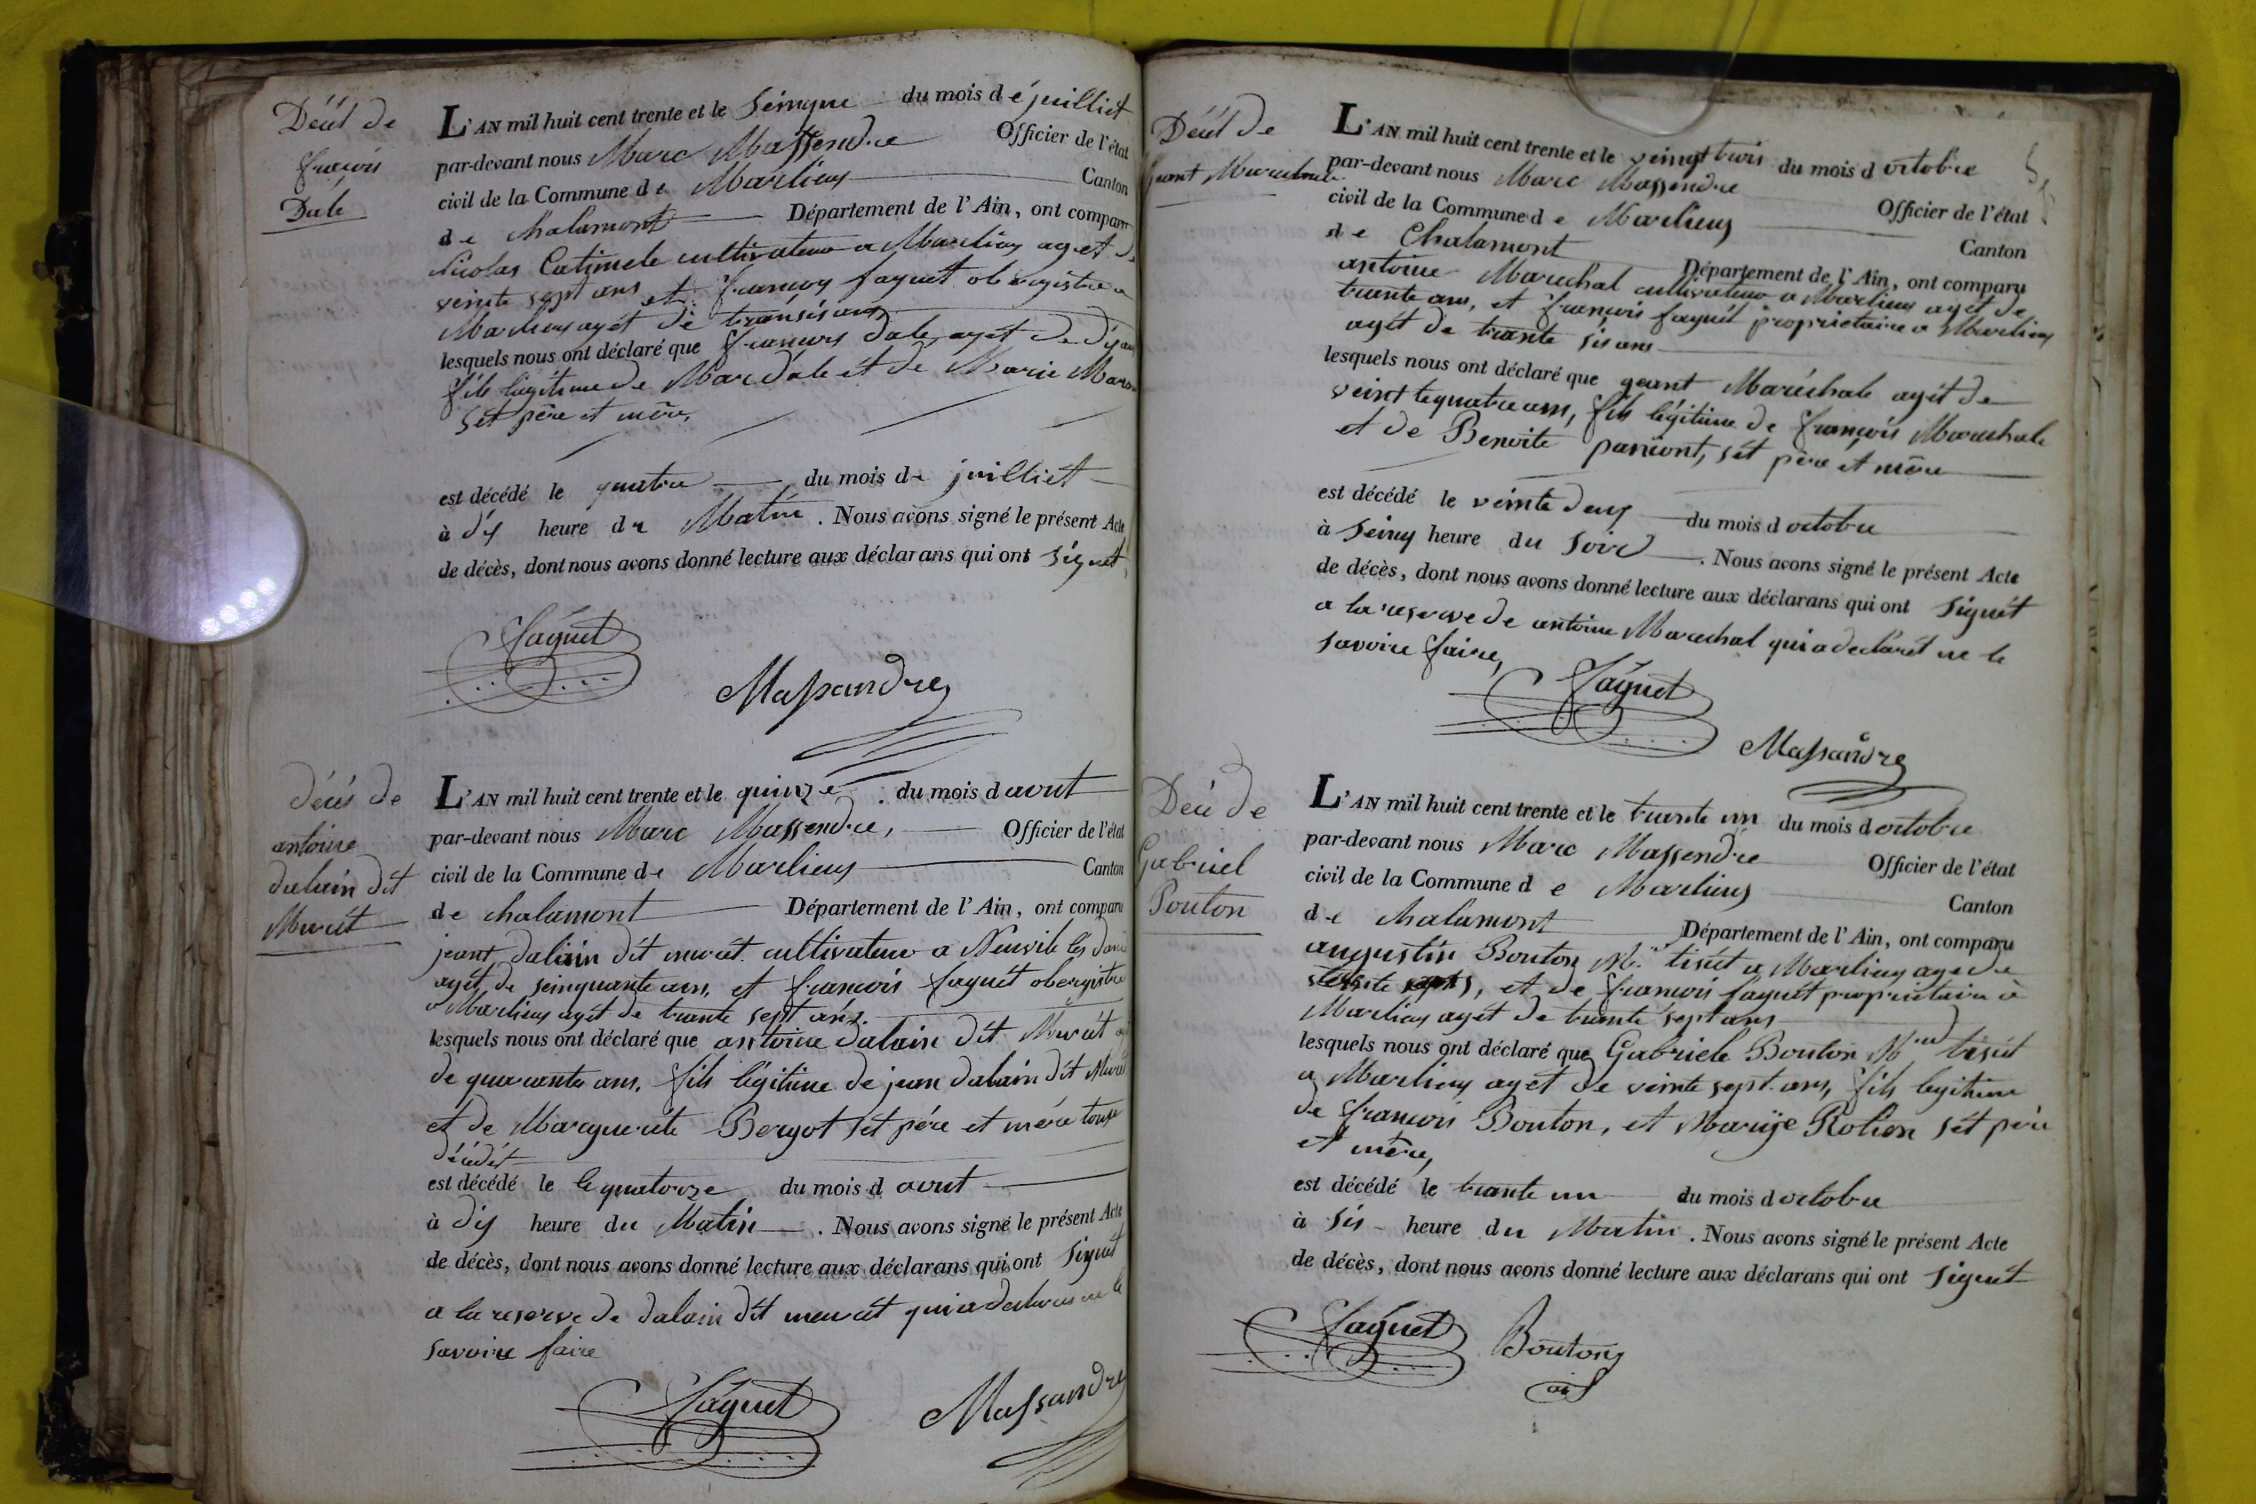 Décét de
françois
Dale
L'AN mil huit cent trente et le sinque du mois d e juilliet
par-devant nous Marc Massendre Officier de l'état
civil de la Commune de Marlieus Canton
de Chalamont Département de l'Ain, ont comparu
Nicolas Catimele cultivateur a Marlieus agét de
veinte sept ans et françois faguét obergistre a
Marlieus agét de transisans
lesquels nous ont déclaré que françois dale agét de dis ans
fils légitime de Marc dale ét de Marie
Sét père et mère,
est décédé le quatre du mois de juilliet
à dis heure du Matin. Nous avons signé le présent Acte
de décès, dont nous avons donné lecture aux déclarans qui ont signét
faguet
Massandre
décés de
antoine
dalain dit
Murét
L'AN mil huit cent trente et le quinze du mois d avut
par-devant nous Marc Massendre, Officier de l'état
civil de la Commune de Marlieus Canton
de chalamont Département de l'Ain, ont comparu
jeant dalain dit murét cultivateur a Neuvile les
agét de seinquante ans, et françois faguét obergistre
a Marlieus agét de trante sept ans.
lesquels nous ont déclaré que antoine dalain dit Murét
de quarante ans, fils légitime de jean dalain dit Murét
et de Marguerite Bergot Sét père et mére tous
décédét
est décédé le le quatorze du mois d avut
à dis heure du Matin. Nous avons signé le présent Acte
de décès, dont nous avons donné lecture aux déclarans qui ont signét
a la reserve de dalain dit murét qui a declaré ne le
savoire faire
faguet
Massandre
Décét de
jeant Marechale
L'AN mil huit cent trente et le veingt trois du mois d octobre
par-devant nous Marc Massendre Officier de l'état
civil de la Commune d e Marlieus Canton
de Chalamont Département de l'Ain, ont comparu
antoine Marechal cultivateur a Marlieus agét de
trante ans, et françois faguét proprietaire a Marlieus
agét de trante sis ans
lesquels nous ont déclaré que geant Maréchale agét de
veint te quatre ans, fils légitime de françois Marechale
et de Benoite paniont, sét père et mère
est décédé le veinte deus du mois d octobre
à seinq heure du soire. Nous avons signé le présent Acte
de décès, dont nous avons donné lecture aux déclarans qui ont signét
a la reserve de antoine Marechal qui a declarét ne le
savoire faire,
faguet
Massandre
Décé de
Gabriel
Bouton
L'AN mil huit cent trente et le trante un du mois d octobre
par-devant nous Marc Massendre Officier de l'état
civil de la Commune d e Marlieus Canton
de Chalamont Département de l'Ain, ont comparu
augustin Bouton Md. tisut a Marlieus age de
et de françois faguét proprietaire à
Marlieus agét de trante sept ans
lesquels nous ont déclaré que Gabriele Bouton Md tisut
a Marlieus agét de veinte sept ans, fils legitime
de françois Bouton, et Mariye Rolion sét père
et mère,
est décédé le trante un du mois d octobre
à sis heure du Matin. Nous avons signé le présent Acte
de décès, dont nous avons donné lecture aux déclarans qui ont signét
faguet
Bouton